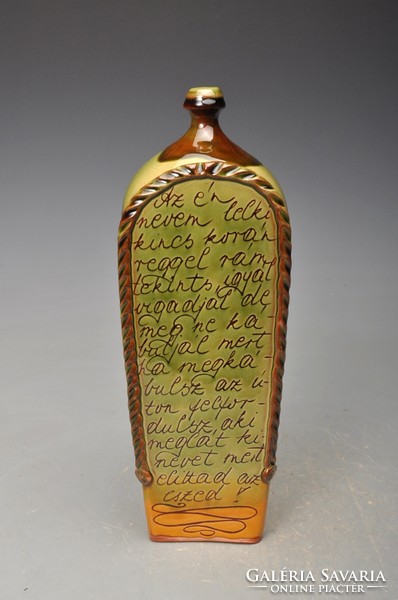 Az én
nevem lelki
kincs korán
reggel rám
tekints, igyál
vigadjál de
meg ne ka-
butjál mert
ha megká-
bulsz az u-
ton felfor-
dulsz, aki
meglát ki-
nevet mert
elittad az
eszed!
GALÉRIA SAVARIA
ONLINE PIACTÉR